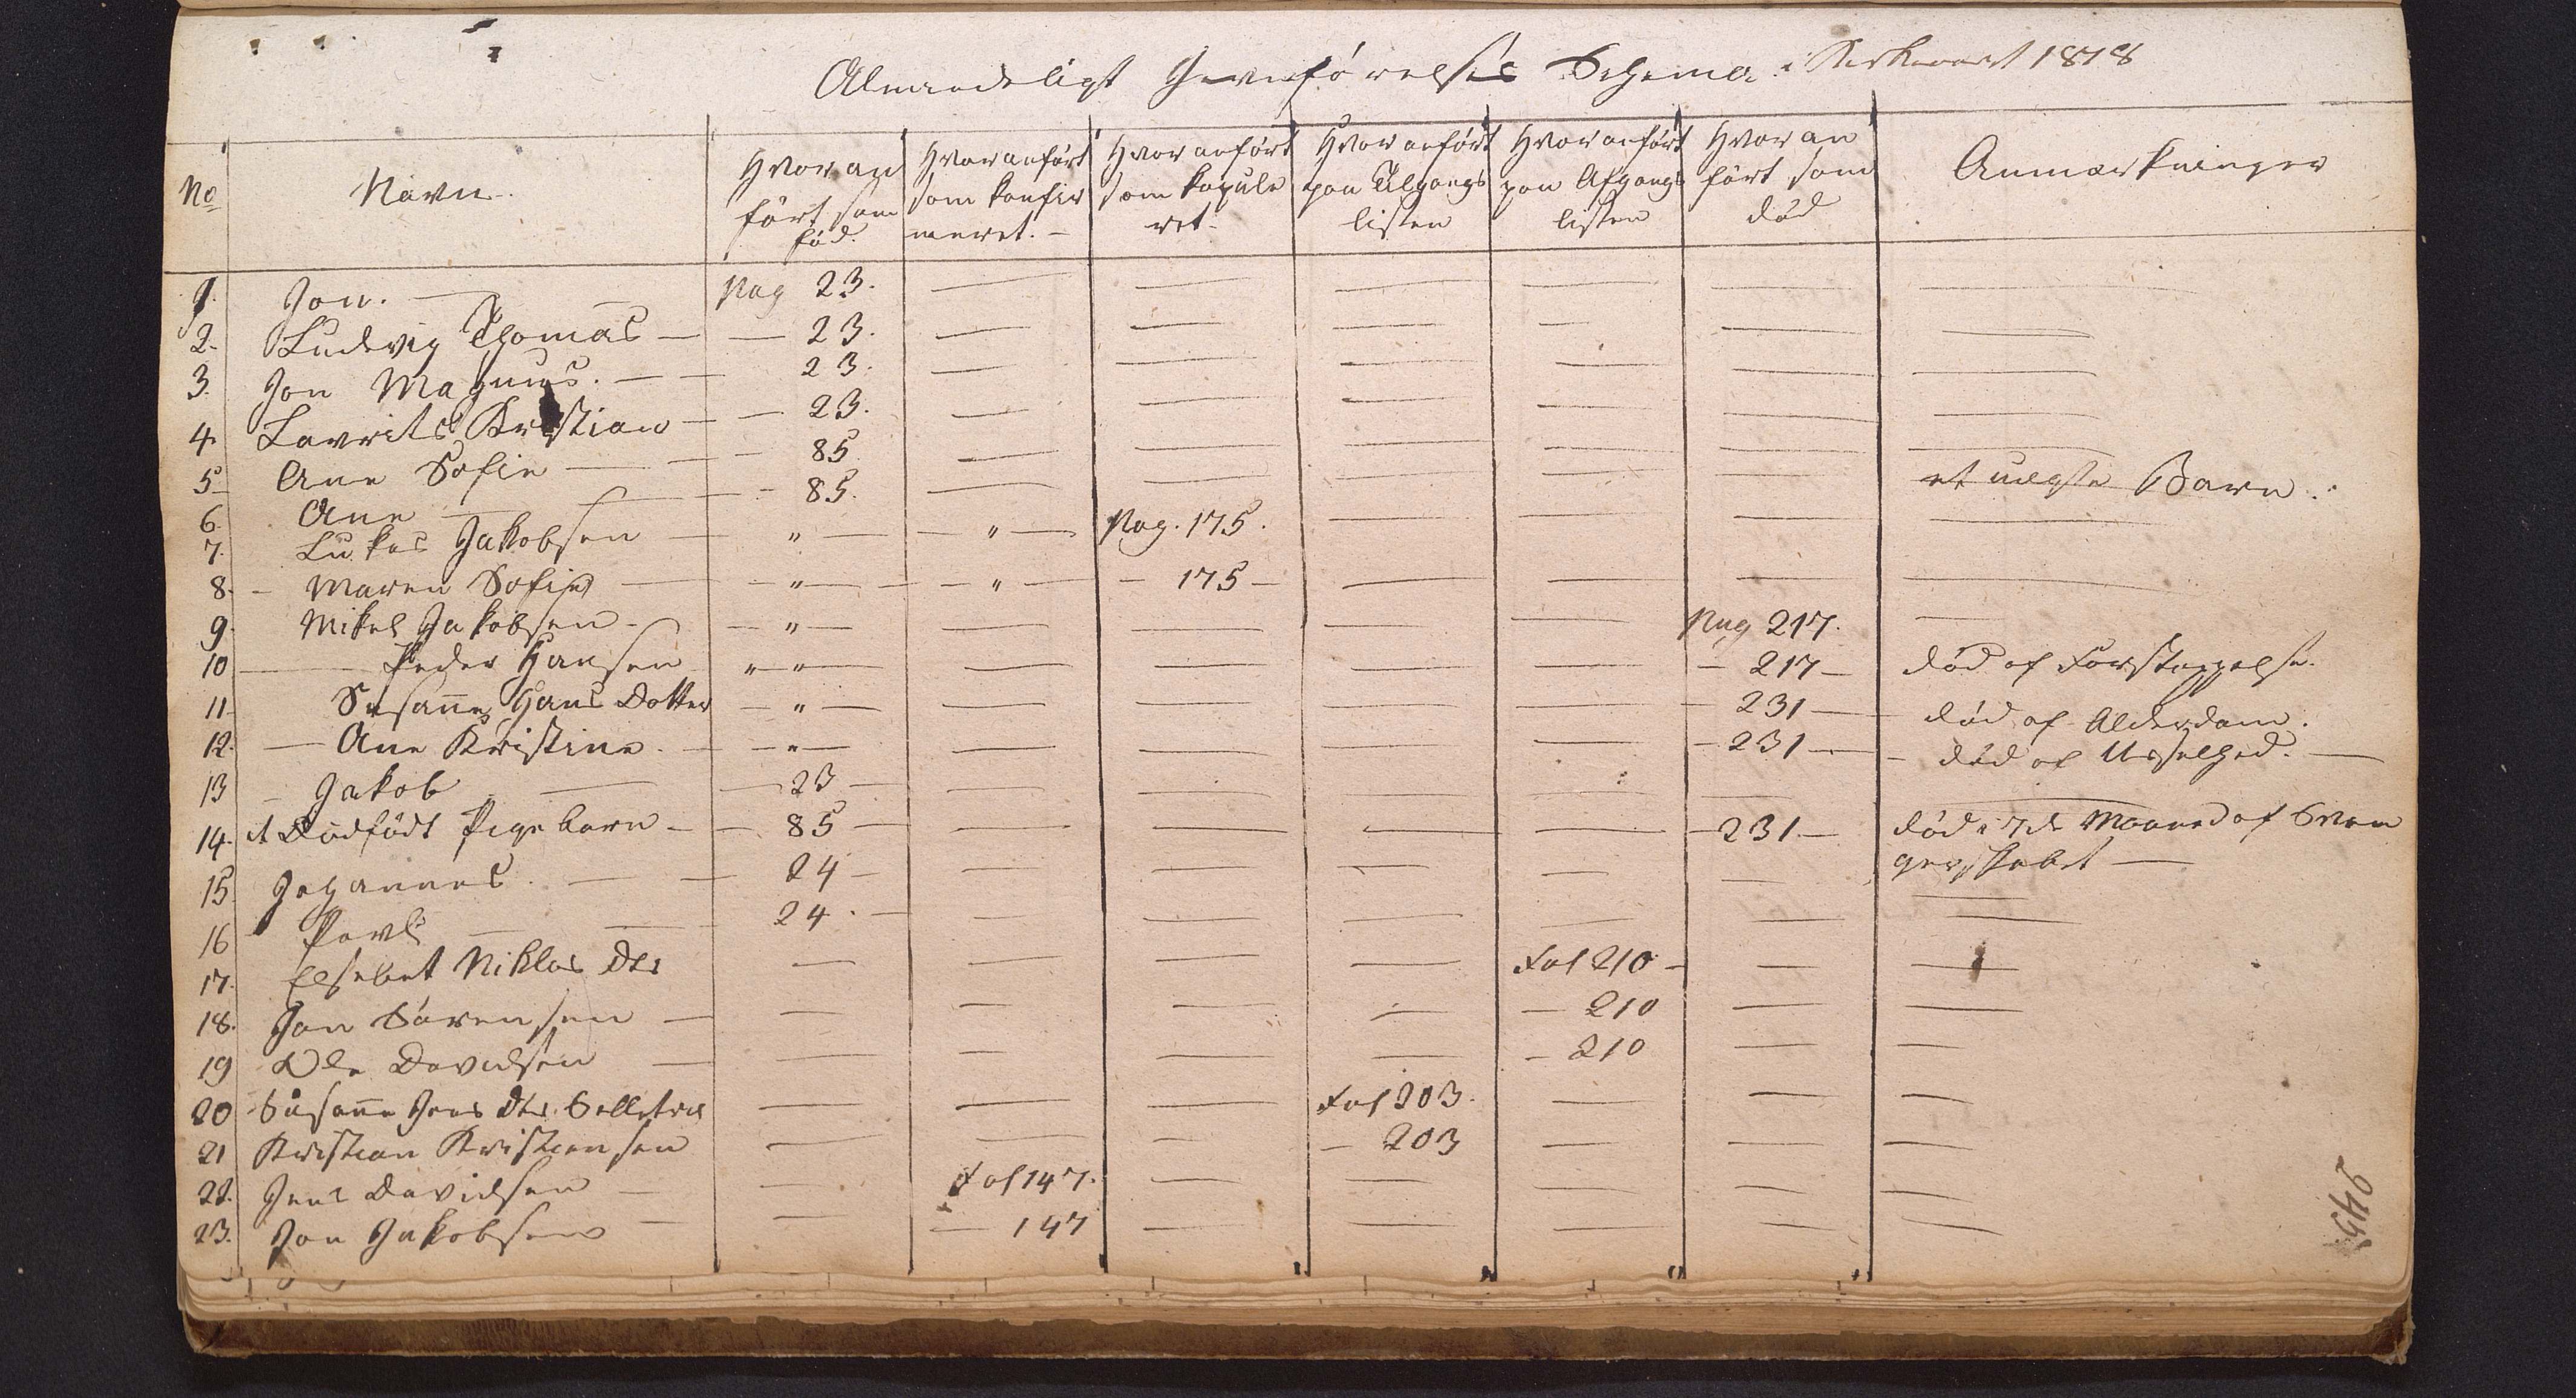 Almindeligt Jevnførelses Schema i Kirkeaaret 1878
No Navn Hvor anført som fød. Hvor anført som konfirmeret. Hvor anført som kopuleret. Hvor anført paa Tilgangslisten Hvor anført paa Afgangslisten Hvor anført som død Anmærkninger
1. Jon. — Pag 23. — — — — — —
2. Ludvig Thomas — — 23. — — — — — —
3. Jon Magnus. — — 23. — — — — — —
4. Lavrits Kristian — 23. — — — — — —
5 Ane Sofie — — 85. — — — — — —
6. Ane — — 85. — — — — — et uægte Barn.
7. Lukas Jakobsen — " — — " — Pag. 175. — — — —
8. - Maren Sofie — — " — — " — — 175 — — — — —
9. Mikel Jakobsen — — " — — — — — Pag 217. —
10 — Peder Hansen " " — — — — — — 217 — død af Forstoppelse.
11 Susanne Hans Datter — " — — — — — — 231 — død af Alderdom.
12. — Ane Kristine. — — " — — — — — — 231 — — død af Usselhed. —
13 — Jakob — — 23 — — — — — — —
14. et Dødfødt Pigebarn — — 85 — — — — — — 231. — død i 7de Maaned af Svan
gerskabet —
15 Johannes. — — 24 — — — — — — —
16 Povl — — 24. — — — — — — —
17. Elsebet Niklas Dtr — — — — Fol 210 — — —
18. Jon Sørensen — — — — — — 210 — —
19 Ole Davidsen — — — — — — 210 — —
20 Susanne Jens Dtr. — — — Fol 203. — — —
21 Kristian Kristiansen — — — — 203 — — —
22. Jens Davidsen — — Fol 147. — — — — —
23. Jon Jakobsen — — — 147 — — — — —
245.